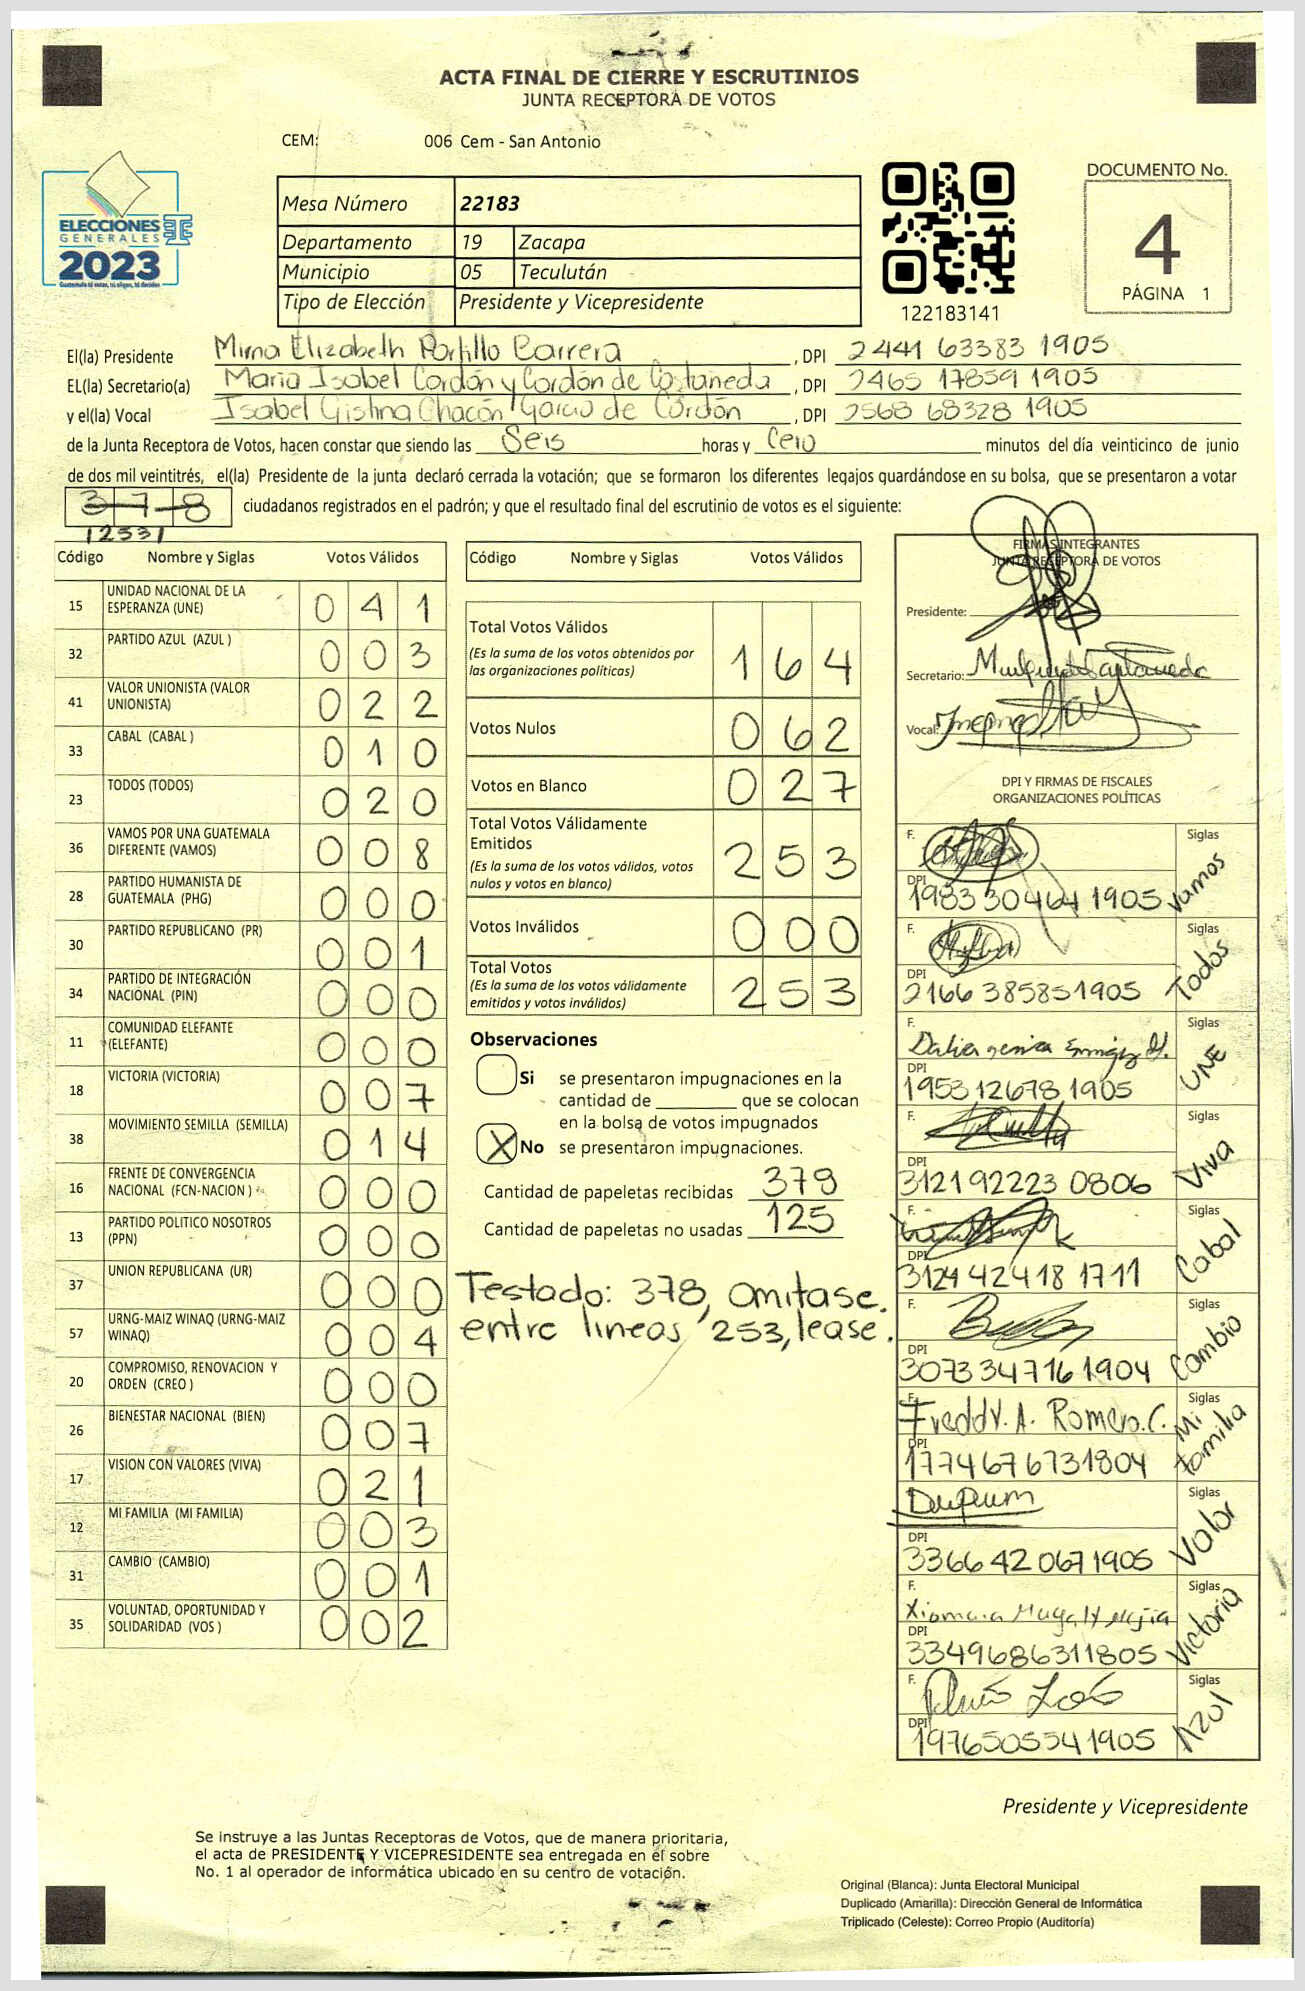 ACTA FINAL DE CIERRE Y ESCRUTINIOS
JUNTA RECEPTORA DE VOTOS
CEM: 006 Cem - San Antonio
ELECCIONES
GENERALES
2023
Guatemala tú votas, tú eliges, tú decides
Mesa Número 22183
Departamento 19 Zacapa
Municipio 05 Teculután
Tipo de Elección Presidente y Vicepresidente
122183141
DOCUMENTO No.
4
PÁGINA 1
El(la) Presidente Mirna Elizabeth Portillo Barrera, DPI 2441 63383 1905
EL(la) Secretario(a) Maria Isabel Cordón y Cordón de Castañeda, DPI 2465 17859 1905
y el(la) Vocal Isabel Cristina Chacón Garcia de Cordón, DPI 2568 68328 1905
de la Junta Receptora de Votos, hacen constar que siendo las Seis horas y Cero minutos del día veinticinco de junio
de dos mil veintitrés, el(la) Presidente de la junta declaró cerrada la votación; que se formaron los diferentes legajos guardándose en su bolsa, que se presentaron a votar
378 ciudadanos registrados en el padrón; y que el resultado final del escrutinio de votos es el siguiente:
253
Código Nombre y Siglas Votos Válidos
15 UNIDAD NACIONAL DE LA ESPERANZA (UNE) 0 4 1
32 PARTIDO AZUL (AZUL ) 0 0 3
41 VALOR UNIONISTA (VALOR UNIONISTA) 0 2 2
33 CABAL (CABAL ) 0 1 0
23 TODOS (TODOS) 0 2 0
36 VAMOS POR UNA GUATEMALA DIFERENTE (VAMOS) 0 0 8
28 PARTIDO HUMANISTA DE GUATEMALA (PHG) 0 0 0
30 PARTIDO REPUBLICANO (PR) 0 0 1
34 PARTIDO DE INTEGRACIÓN NACIONAL (PIN) 0 0 0
11 COMUNIDAD ELEFANTE (ELEFANTE) 0 0 0
18 VICTORIA (VICTORIA) 0 0 7
38 MOVIMIENTO SEMILLA (SEMILLA) 0 1 4
16 FRENTE DE CONVERGENCIA NACIONAL (FCN-NACION ) 0 0 0
13 PARTIDO POLITICO NOSOTROS (PPN) 0 0 0
37 UNION REPUBLICANA (UR) 0 0 0
57 URNG-MAIZ WINAQ (URNG-MAIZ WINAQ) 0 0 4
20 COMPROMISO, RENOVACION Y ORDEN (CREO ) 0 0 0
26 BIENESTAR NACIONAL (BIEN) 0 0 7
17 VISION CON VALORES (VIVA) 0 2 1
12 MI FAMILIA (MI FAMILIA) 0 0 3
31 CAMBIO (CAMBIO) 0 0 1
35 VOLUNTAD, OPORTUNIDAD Y SOLIDARIDAD (VOS ) 0 0 2
Código Nombre y Siglas Votos Válidos
Total Votos Válidos 1 6 4
(Es la suma de los votos obtenidos por
las organizaciones políticas)
Votos Nulos 0 6 2
Votos en Blanco 0 2 7
Total Votos Válidamente
Emitidos 2 5 3
(Es la suma de los votos válidos, votos
nulos y votos en blanco)
Votos Inválidos 0 0 0
Total Votos 2 5 3
(Es la suma de los votos válidamente
emitidos y votos inválidos)
Observaciones
Si se presentaron impugnaciones en la
cantidad de ________ que se colocan
en la bolsa de votos impugnados
X No se presentaron impugnaciones.
Cantidad de papeletas recibidas 378
Cantidad de papeletas no usadas 125
Testado: 378, omitase.
entre lineas 253, lease.
FIRMAS INTEGRANTES
JUNTA RECEPTORA DE VOTOS
Presidente:
Secretario:
Vocal:
DPI Y FIRMAS DE FISCALES
ORGANIZACIONES POLÍTICAS
F. Siglas Vamos
DPI 1983 30464 1905
F. Siglas Todos
DPI 2166 38585 1905
F. Siglas UNE
DPI 1953 12678 1905
F. Siglas Viva
DPI 3121 92223 0806
F. Siglas Cabal
DPI 3124 42418 1711
F. Siglas Cambio
DPI 3073 34716 1904
F. Freddy. A. Romero. C. Siglas Mi familia
DPI 1774676731804
F. Siglas Valor
DPI 3366 42 067 1905
F. Xiomara Magaly Mejia Siglas Victoria
DPI 3349686311805
F. Siglas Azul
DPI 1976505341905
Presidente y Vicepresidente
Se instruye a las Juntas Receptoras de Votos, que de manera prioritaria,
el acta de PRESIDENTE Y VICEPRESIDENTE sea entregada en el sobre
No. 1 al operador de informática ubicado en su centro de votación.
Original (Blanca): Junta Electoral Municipal
Duplicado (Amarilla): Dirección General de Informática
Triplicado (Celeste): Correo Propio (Auditoría)